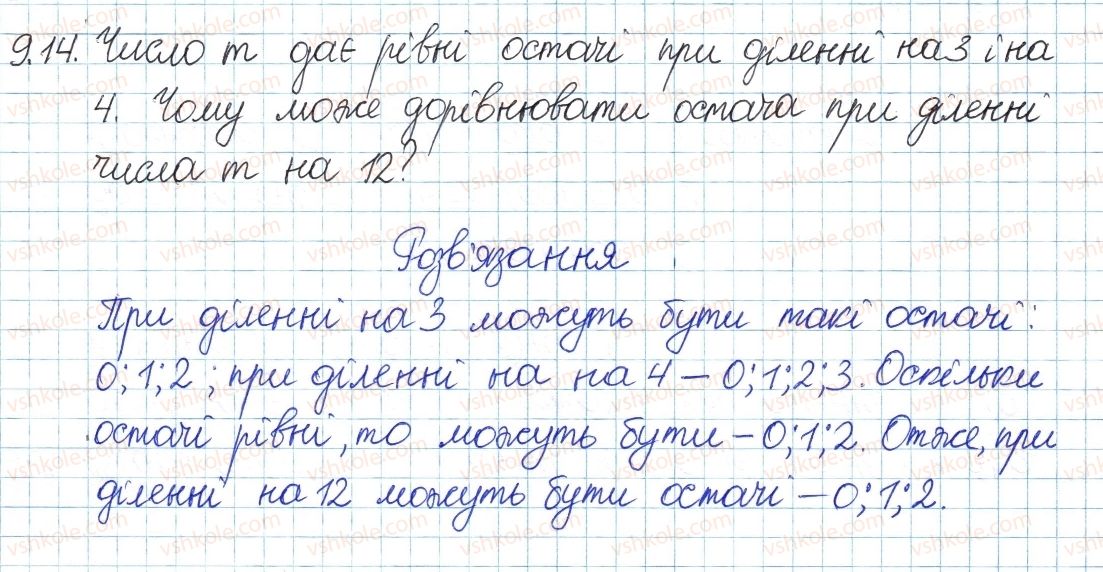 9.14. Число m дає рівні остачі при діленні на 3 і на
4. Чому може дорівнювати остача при діленні
числа m на 12?
Розв'язання
При діленні на 3 можуть бути такі остачі:
0; 1; 2; при діленні на на 4 – 0; 1; 2; 3. Оскільки
остачі рівні, то можуть бути – 0; 1; 2. Отже, при
діленні на 12 можуть бути остачі – 0; 1; 2.
vshkole.com